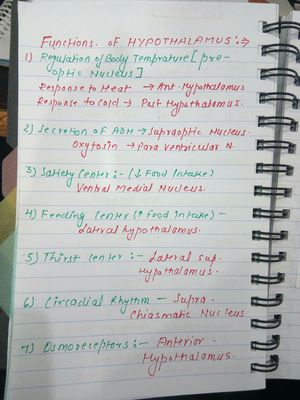 Functions of HYPOTHALAMUS :→
1) Regulation of Body Temprature [pre-
optic Nucleus]
Response to Heat → Ant. Hypothalamus
Response to Cold → Post Hypothalamus.
2) Secretion of ADH → Supraoptic Nucleus.
Oxytosin → Para ventricular N.
3) Satiety Center :- (↓ Food Intake)
Ventral Medial Nucleus.
4) Feeding Center (↑ Food intake) -
Lateral hypothalamus.
5) Thirst Center :- Lateral Sup.
Hypothalamus.
6) Circadial Rhythm - Supra-
Chiasmatic Nucleus
7) Osmoreceptors :- Anterior
Hypothalamus.